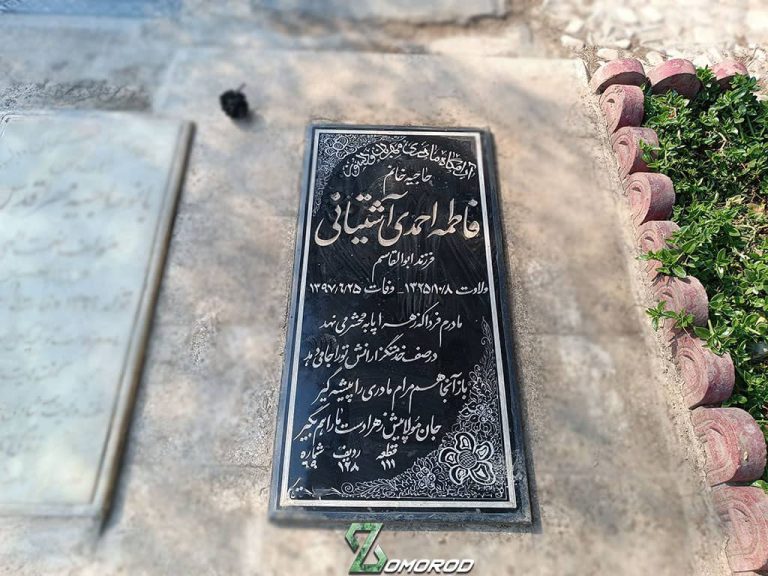 آرامگاه مادری مهربان و دلسوز
حاجیه خانم
فاطمه احمدی آشتیانی
فرزند ابوالقاسم
ولادت ۱۳۲۵/۱۰/۸ - وفات ۱۳۹۷/۶/۲۵
مادرم فردا که زهرا پا به محشر می نهد
در صف خدمتگزارانش تو را جا می دهد
باز آنجا هم مرام مادری را پیشه گیر
جان مولا پیش زهرا دست ما را هم بگیر
قطعه ردیف شماره
۱۱۱ ۱۲۸ ۶۹
ZOMOROD